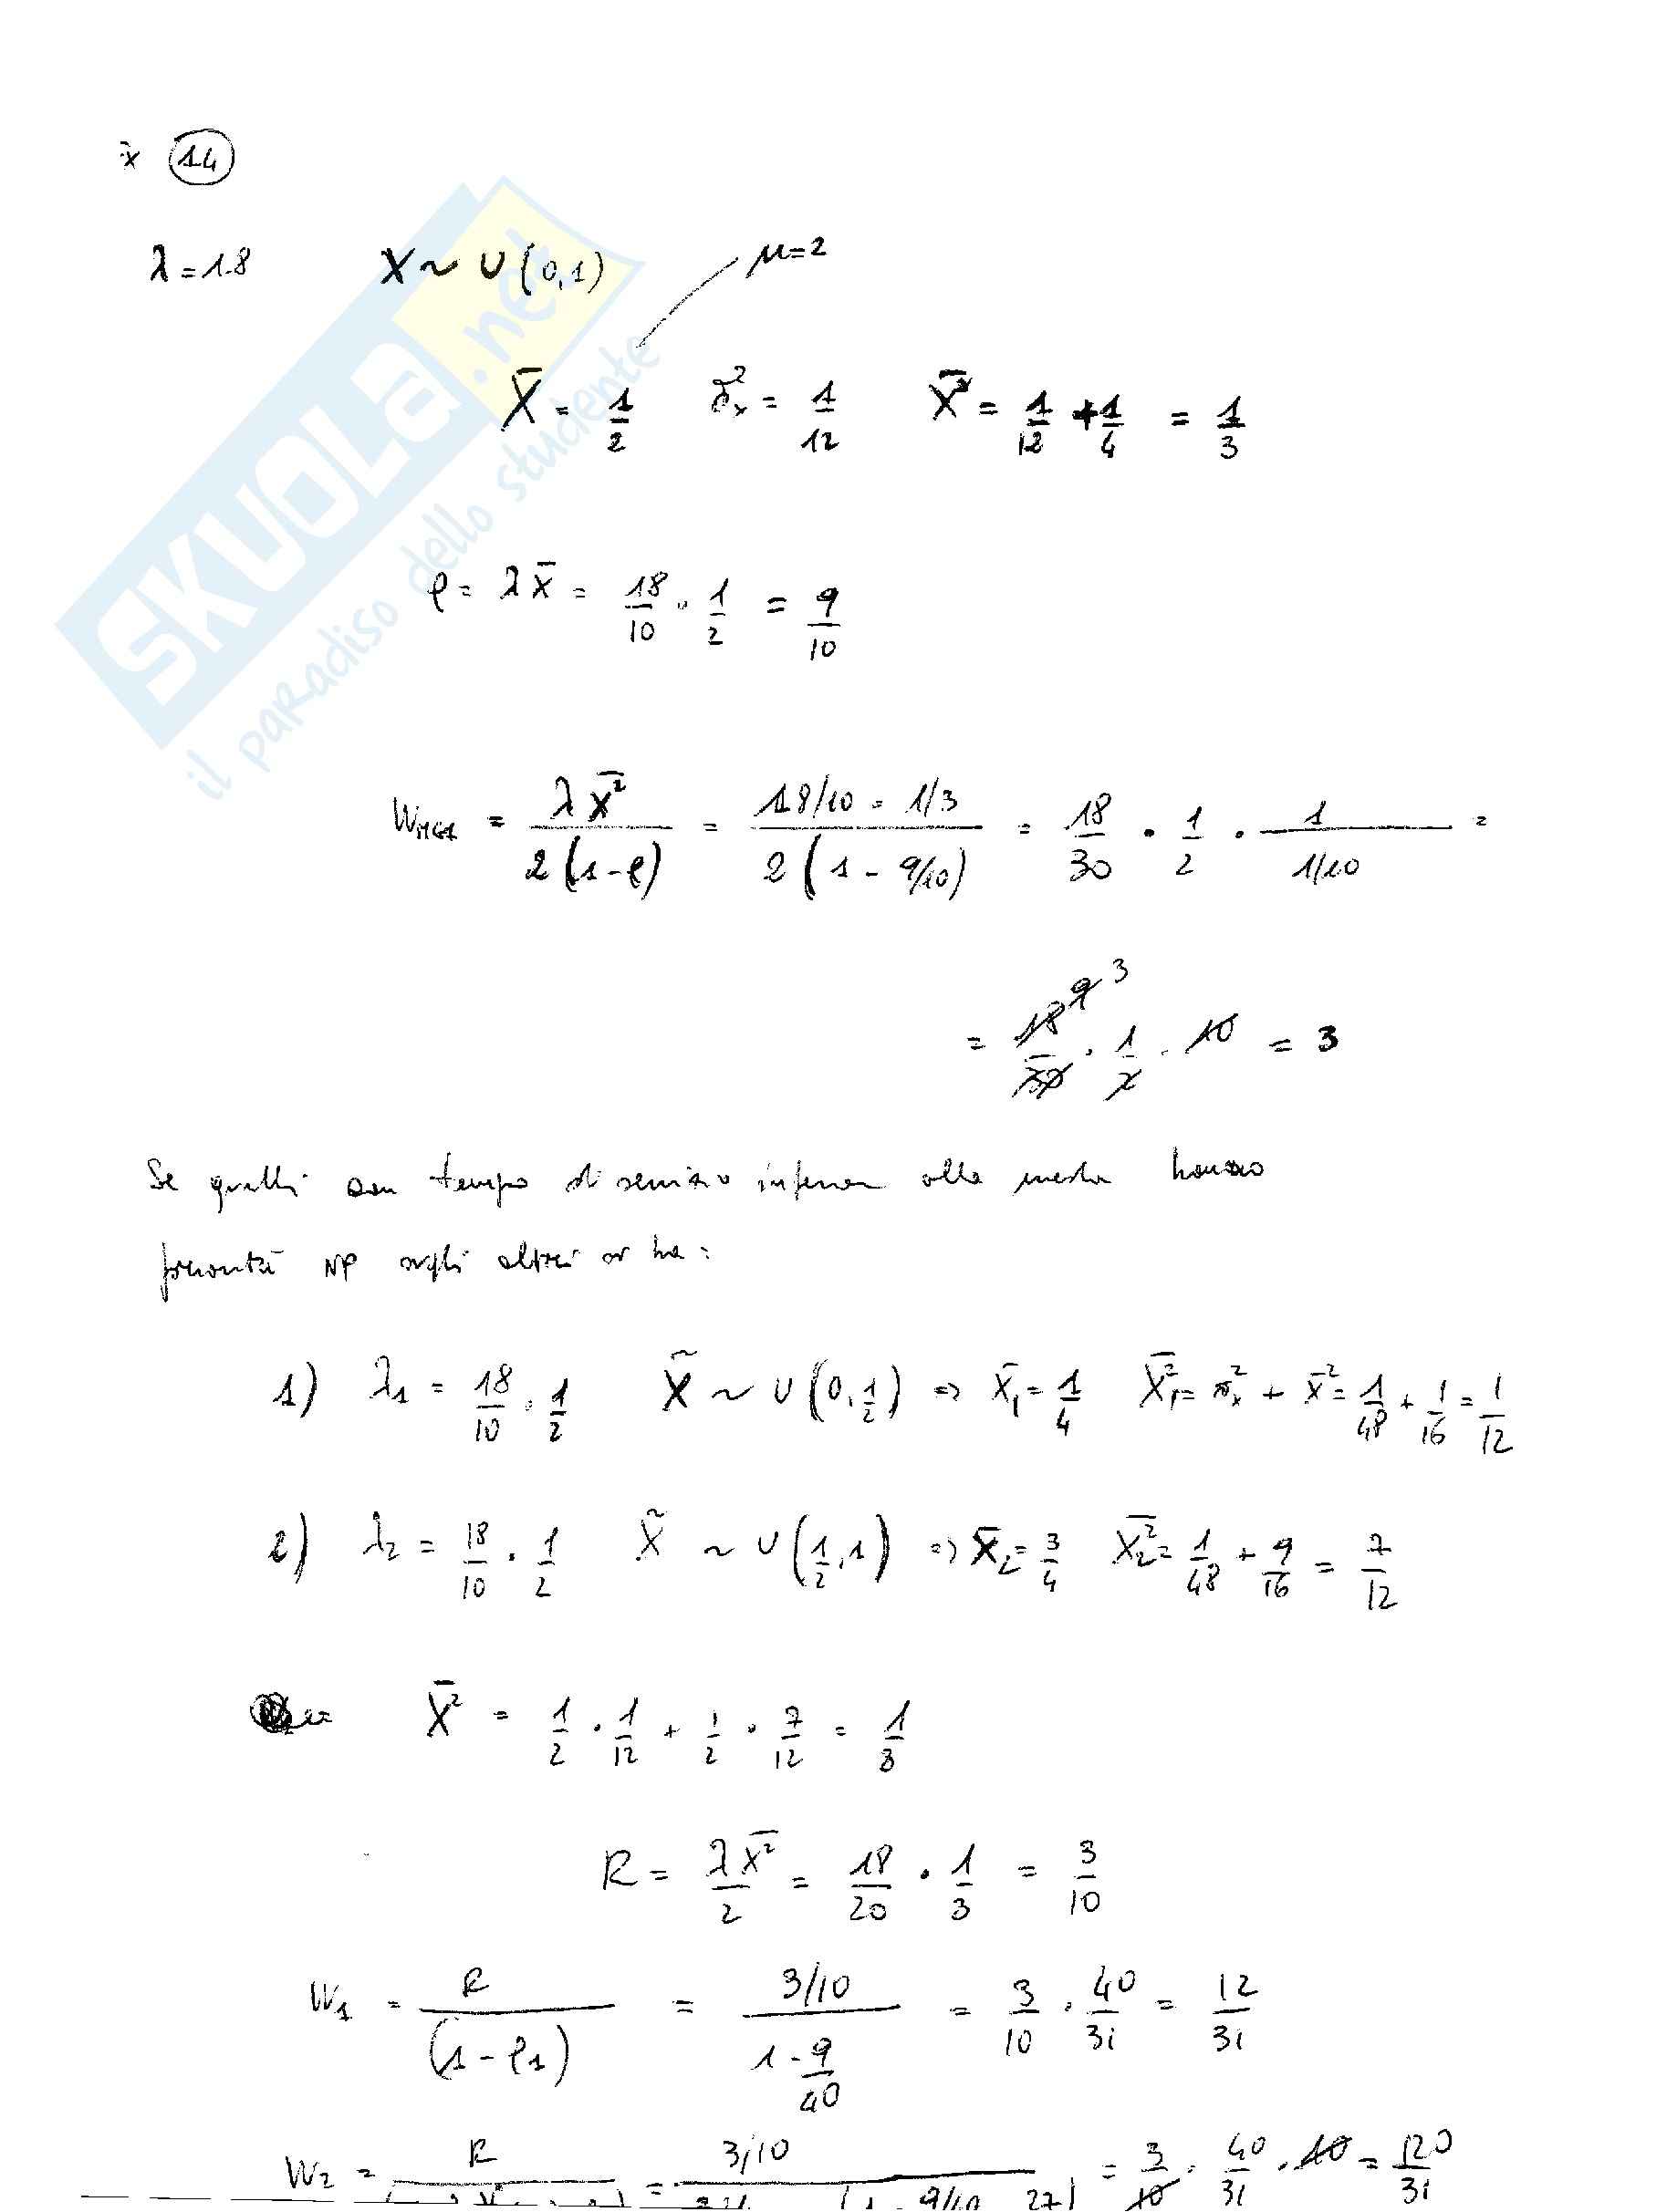 Ex 14
λ = 1.8 X ~ U(0,1) μ=2
X̄ = 1/2 σ²ₓ = 1/12 X̄² = 1/12 + 1/4 = 1/3
ρ = λ x̄ = 18/10 · 1/2 = 9/10
W_MG1 = λ x̄² / 2(1-ρ) = 18/10 · 1/3 / 2(1 - 9/10) = 18/30 · 1/2 · 1 / 1/10 =
= 18 9 3 / 30 · 1/2 · 10 = 3
Se quelli con tempo di servizio inferiore alla media hanno
priorità NP sugli altri si ha:
1) λ₁ = 18/10 · 1/2 X̃ ~ U(0, 1/2) => X̄₁ = 1/4 X̄₁² = σ²ₓ + x̄² = 1/48 + 1/16 = 1/12
2) λ₂ = 18/10 · 1/2 X̃ ~ U(1/2, 1) => X̄₂ = 3/4 X̄₂² = 1/48 + 9/16 = 7/12
X̄² = 1/2 · 1/12 + 1/2 · 7/12 = 1/3
R = λ x̄² / 2 = 18/20 · 1/3 = 3/10
W₁ = R / (1-ρ₁) = 3/10 / 1 - 9/40 = 3/10 · 40/31 = 12/31
W₂ = R = 3/10 = 3/10 · 40/31 · 10 = 120/31
SKUOLA.net
il paradiso dello studente